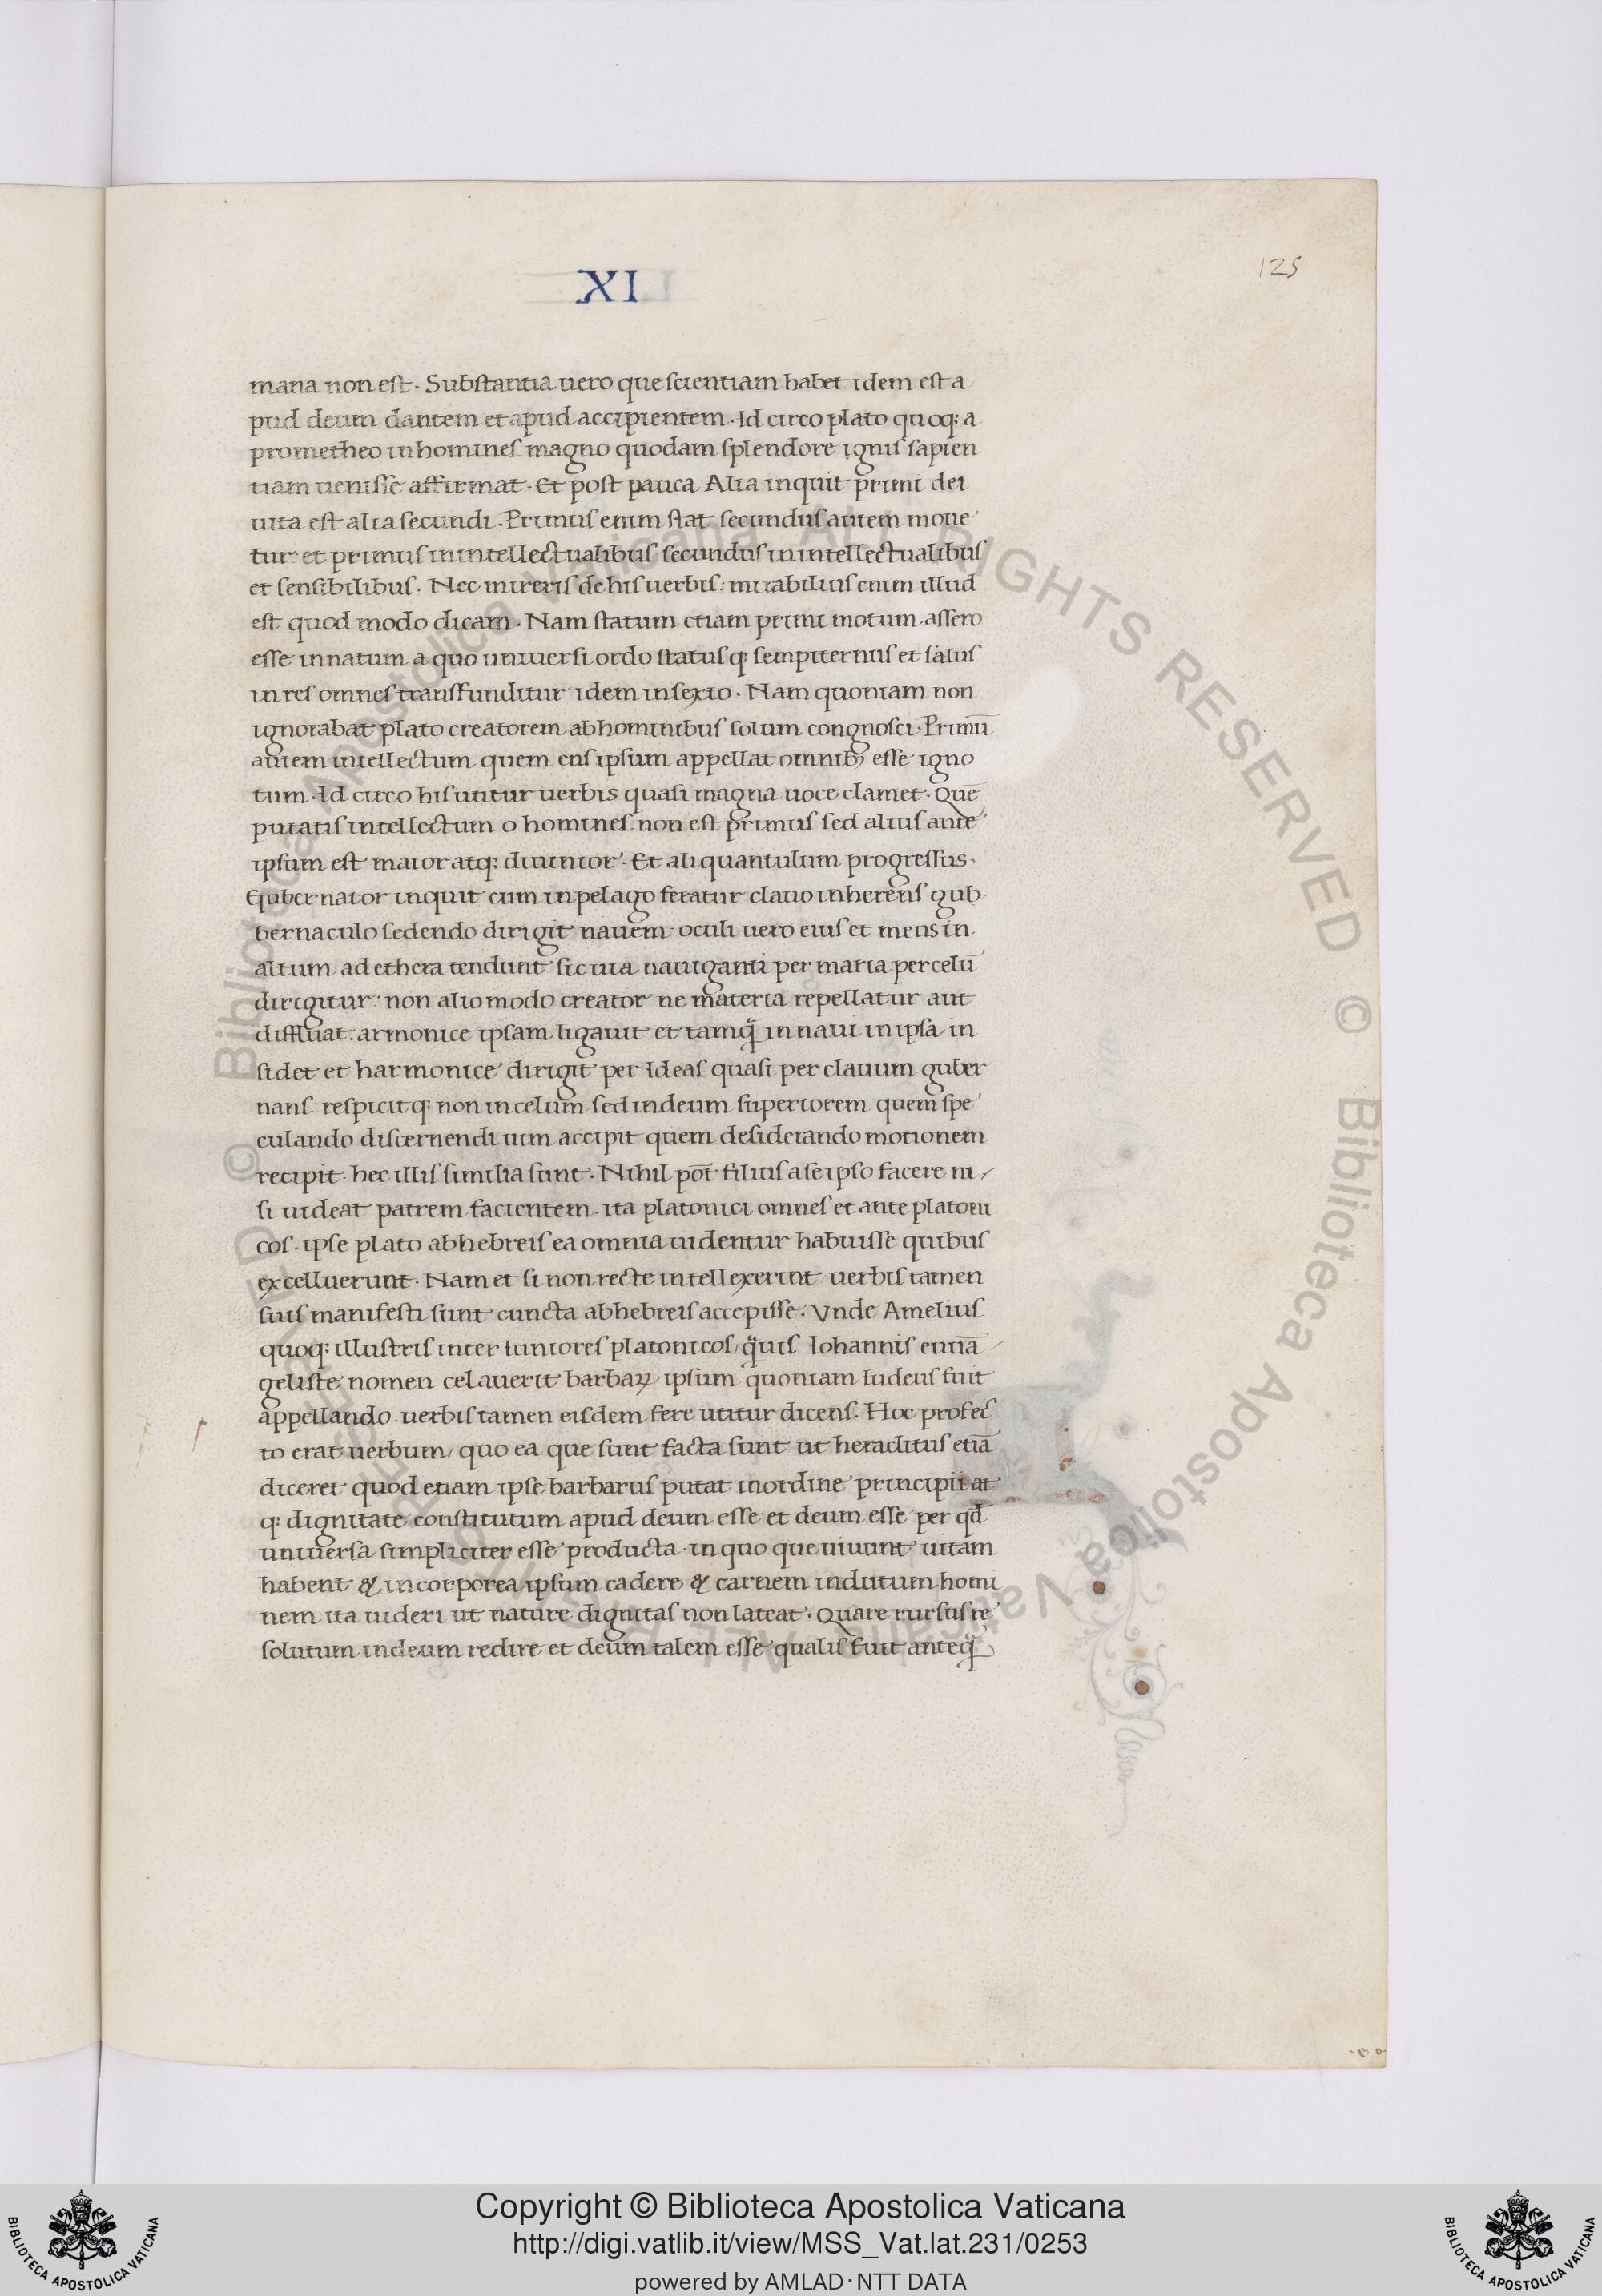 .XI
125
mana non est. Substantia uero que scientiam habet idem est a
pud deum dantem et apud accipientem. Id circo plato quoq: a
prometheo in homines magno quodam splendore ignis sapien
tiam uenisse affirmat. Et post pauca Alia inquit primi dei
uita est alia secundi. Primus enim stat secundus autem moue
tur et primus in intellectualibus secundus in intellectualibus
et sensibilibus. Nec mireris de his uerbis: mirabilius enim illud
est quod modo dicam. Nam statum etiam primi motum. assero
esse innatum a quo uniuersi ordo status q: sempiternus et salus
in res omnes transfunditur idem in sexto. Nam quoniam non
ignorabat plato creatorem ab hominibus solum congnosci. Primū
autem intellectum quem ens ipsum appellat omnibꝫ esse igno
tum. Id circo his utitur uerbis quasi magna uoce clamet. Quē
putatis intellectum o homines non est primus sed alius ante
ipsum est maior atq: diuinior. Et aliquantulum progressus.
Gubernator inquit cum in pelago feratur clauo inherens gub
bernaculo sedendo dirigit nauem. oculi uero eius et mens in
altum ad ethera tendunt sic uia nauiganti per maria per celū
dirigitur: non alio modo creator ne materia repellatur aut
diffluat. armonice ipsam ligauit et tamq̃ in naui in ipsa in
sidet et harmonice dirigit per Ideas quasi per clauum guber
nans. respicit q: non in celum sed in deum superiorem quem spe
culando discernendi uim accipit quem desiderando motionem
recipit. hec illis similia sunt. Nihil pot̄ filius a se ipso facere ni/
si uideat patrem facientem. ita platonici omnes et ante platoni
cos. ipse plato ab hebreis ea omnia uidentur habuisse quibus
excelluerunt. Nam et si non recte intellexerint uerbis tamen
suis manifesti sunt cuncta ab hebreis accepisse. Vnde Amelius
quoq: illustris inter Iuniores platonicos/ q̃uis Iohannis euuā
geliste nomen celauerit barbaꝝ ipsum quoniam Iudeus fuit
appellando. uerbis tamen eisdem fere utitur dicens. Hoc profec
to erat uerbum/ quo ea que sunt facta sunt ut heraclitus etiā
diceret quod etiam ipse barbarus putat in ordine principii at
q: dignitate constitutum apud deum esse et deum esse per qd̄
uniuersa simpliciter esse producta. in quo que uiuunt uitam
habent & in corporea ipsum cadere & carnem indutum homi
nem ita uideri ut nature dignitas non lateat. Quare rursus re
solutum in deum redire et deum talem esse qualis fuit anteq̃
Copyright © Biblioteca Apostolica Vaticana
http://digi.vatlib.it/view/MSS_Vat.lat.231/0253
powered by AMLAD·NTT DATA
BIBLIOTECA APOSTOLICA VATICANA
BIBLIOTECA APOSTOLICA VATICANA
© Biblioteca Apostolica Vaticana ALL RIGHTS RESERVED © Biblioteca Apostolica Vaticana ALL RIGHTS RESERVED